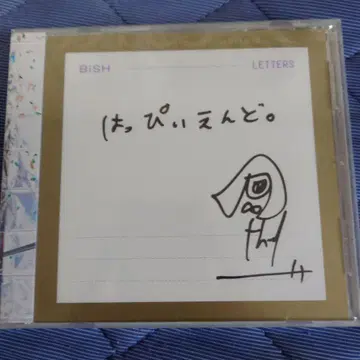 BiSH
LETTERS
はっぴいえんど。